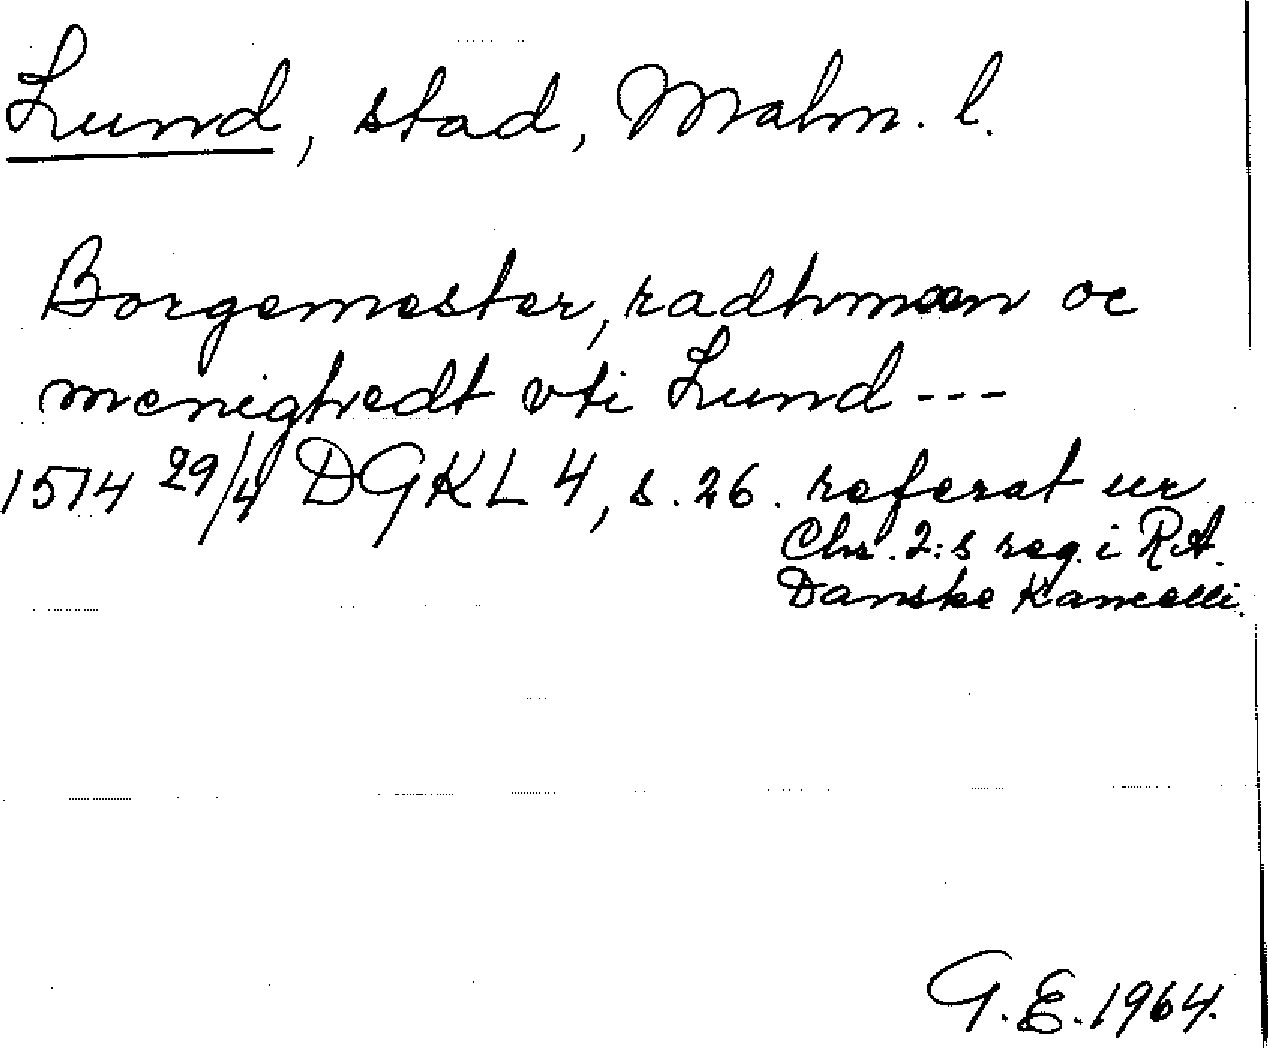 Lund, stad, Malm. l.
Borgemester, radhmæn oc
menighedt vti Lund ---
1514 29/4 DGKL 4, s. 26. referat ur
Chr. 2:s reg. i RA.
Danske Kancelli.
G.E. 1964.